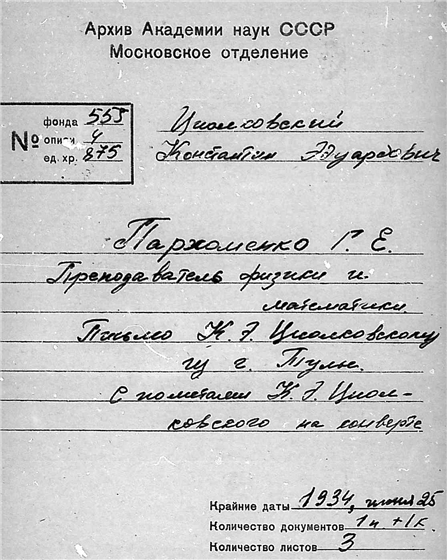 Архив Академии наук СССР
Московское отделение
№
фонда 555
описи 4
ед. хр. 875
Циолковский
Константин Эдуардович
Пархоменко Г. Е.
Преподаватель физики и
математики
Письмо К. Э. Циолковскому
из г. Тулы.
С пометами К. Э. Циол-
ковского на конверте
Крайние даты 1934, июня 25
Количество документов 1п + 1к
Количество листов 3